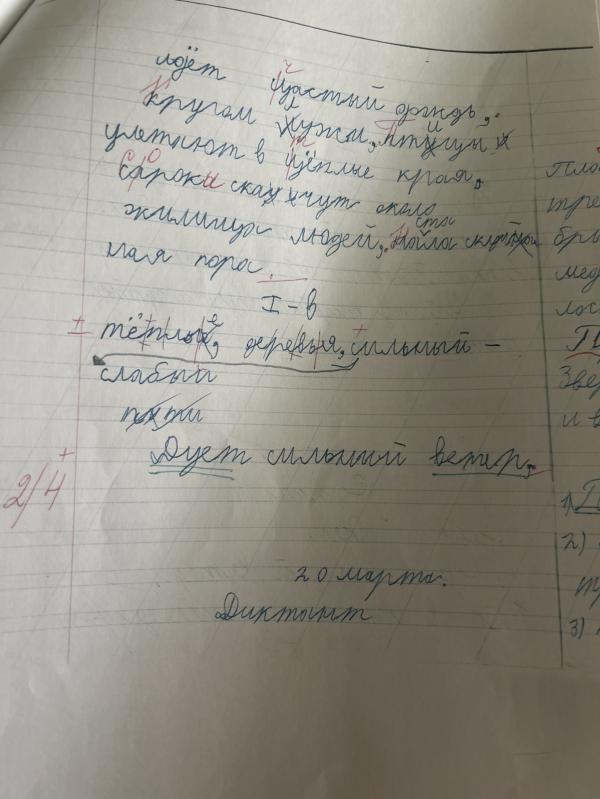 идёт частый дождь.
Кругом лужи, Птицы
улетают в тёплые края,
Сароки скачут около
жилища людей, Настала
ная пора.
I-в
± тёплые, деревья, сильный -
слабый
Дует сильный ветер.
2/4
20 марта.
Диктант
Пло
тре
бры
мед
лос
Звер
и в
1) П
2)
3)